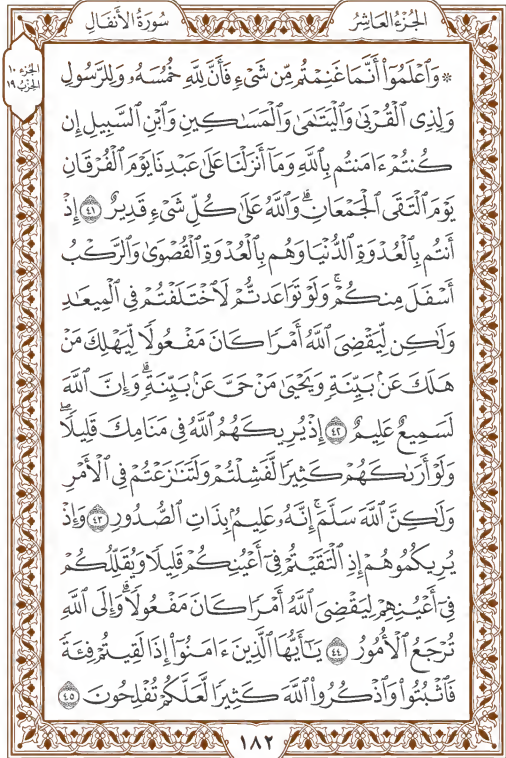 الجُزْءُ العَاشِرُ
سُورَةُ الأَنفَالِ
الجُزء ١٠
الحِزْبُ ١٩
۞ وَٱعْلَمُوٓا۟ أَنَّمَا غَنِمْتُم مِّن شَىْءٍ فَأَنَّ لِلَّهِ خُمُسَهُۥ وَلِلرَّسُولِ
وَلِذِى ٱلْقُرْبَىٰ وَٱلْيَتَـٰمَىٰ وَٱلْمَسَـٰكِينِ وَٱبْنِ ٱلسَّبِيلِ إِن
كُنتُمْ ءَامَنتُم بِٱللَّهِ وَمَآ أَنزَلْنَا عَلَىٰ عَبْدِنَا يَوْمَ ٱلْفُرْقَانِ
يَوْمَ ٱلْتَقَى ٱلْجَمْعَانِ ۗ وَٱللَّهُ عَلَىٰ كُلِّ شَىْءٍ قَدِيرٌ ٤١ إِذْ
أَنتُم بِٱلْعُدْوَةِ ٱلدُّنْيَا وَهُم بِٱلْعُدْوَةِ ٱلْقُصْوَىٰ وَٱلرَّكْبُ
أَسْفَلَ مِنكُمْ ۚ وَلَوْ تَوَاعَدتُّمْ لَٱخْتَلَفْتُمْ فِى ٱلْمِيعَـٰدِ
وَلَـٰكِن لِّيَقْضِىَ ٱللَّهُ أَمْرًا كَانَ مَفْعُولًا لِّيَهْلِكَ مَنْ
هَلَكَ عَنۢ بَيِّنَةٍ وَيَحْيَىٰ مَنْ حَىَّ عَنۢ بَيِّنَةٍ ۗ وَإِنَّ ٱللَّهَ
لَسَمِيعٌ عَلِيمٌ ٤٢ إِذْ يُرِيكَهُمُ ٱللَّهُ فِى مَنَامِكَ قَلِيلًا ۖ
وَلَوْ أَرَىٰكَهُمْ كَثِيرًا لَّفَشِلْتُمْ وَلَتَنَـٰزَعْتُمْ فِى ٱلْأَمْرِ
وَلَـٰكِنَّ ٱللَّهَ سَلَّمَ ۗ إِنَّهُۥ عَلِيمٌۢ بِذَاتِ ٱلصُّدُورِ ٤٣ وَإِذْ
يُرِيكُمُوهُمْ إِذِ ٱلْتَقَيْتُمْ فِىٓ أَعْيُنِكُمْ قَلِيلًا وَيُقَلِّلُكُمْ
فِىٓ أَعْيُنِهِمْ لِيَقْضِىَ ٱللَّهُ أَمْرًا كَانَ مَفْعُولًا ۗ وَإِلَى ٱللَّهِ
تُرْجَعُ ٱلْأُمُورُ ٤٤ يَـٰٓأَيُّهَا ٱلَّذِينَ ءَامَنُوٓا۟ إِذَا لَقِيتُمْ فِئَةً
فَٱثْبُتُوا۟ وَٱذْكُرُوا۟ ٱللَّهَ كَثِيرًا لَّعَلَّكُمْ تُفْلِحُونَ ٤٥
١٨٢